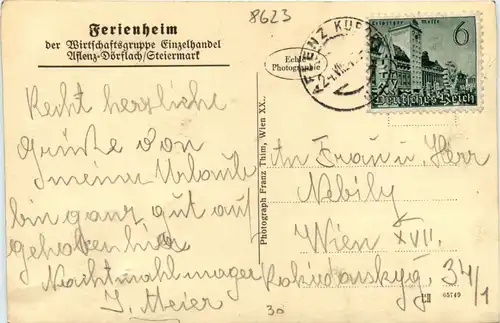 Ferienheim
der Wirtschaftsgruppe Einzelhandel
Aflenz-Dörflach/Steiermark
8623
Echte
Photographie
AFLENZ KURORT
Leipziger Messe
6
Deutsches Reich
Recht herzliche
Grüße von
meinem Urlaube
bin ganz gut auf
gehoben hier
Nachtmahl mager
J. Meier
Photograph Franz Thim, Wien XX.
An Frau u. Herr
Nebily
Wien XVII.
Rokidanskyg. 34/1
30
65749